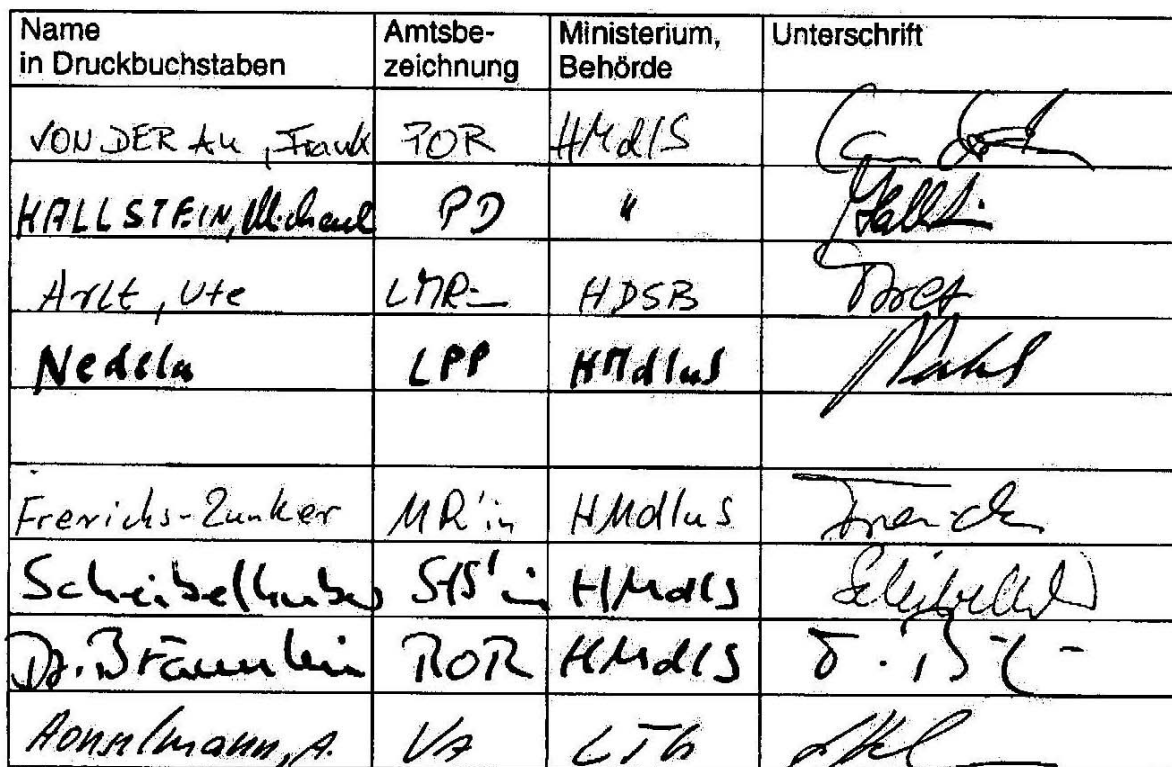 Name in Druckbuchstaben Amtsbe-zeichnung Ministerium, Behörde Unterschrift
VON DER Au, Frank POR HMdIS
HALLSTEIN, Michael PD "
Arlt, Ute LMR- HDSB Arlt
Nedela LPP HMdIuS
Frerichs-Zunker MR'in HMdIuS
Scheibelhuber StS'in HMdIS
Dr. Bräunlein ROR HMdIS
VA LTG